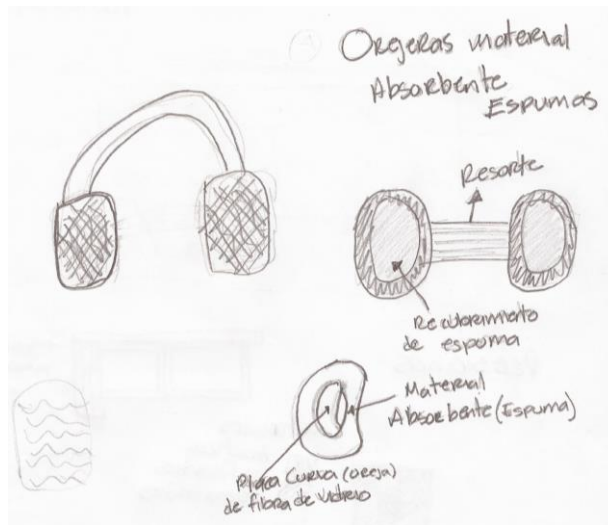 Orejeras material
Absorbente
Espumas
Resorte
Recubrimiento
de espuma
Material
Absorbente (Espuma)
Placa Curva (oreja)
de fibra de vidrio